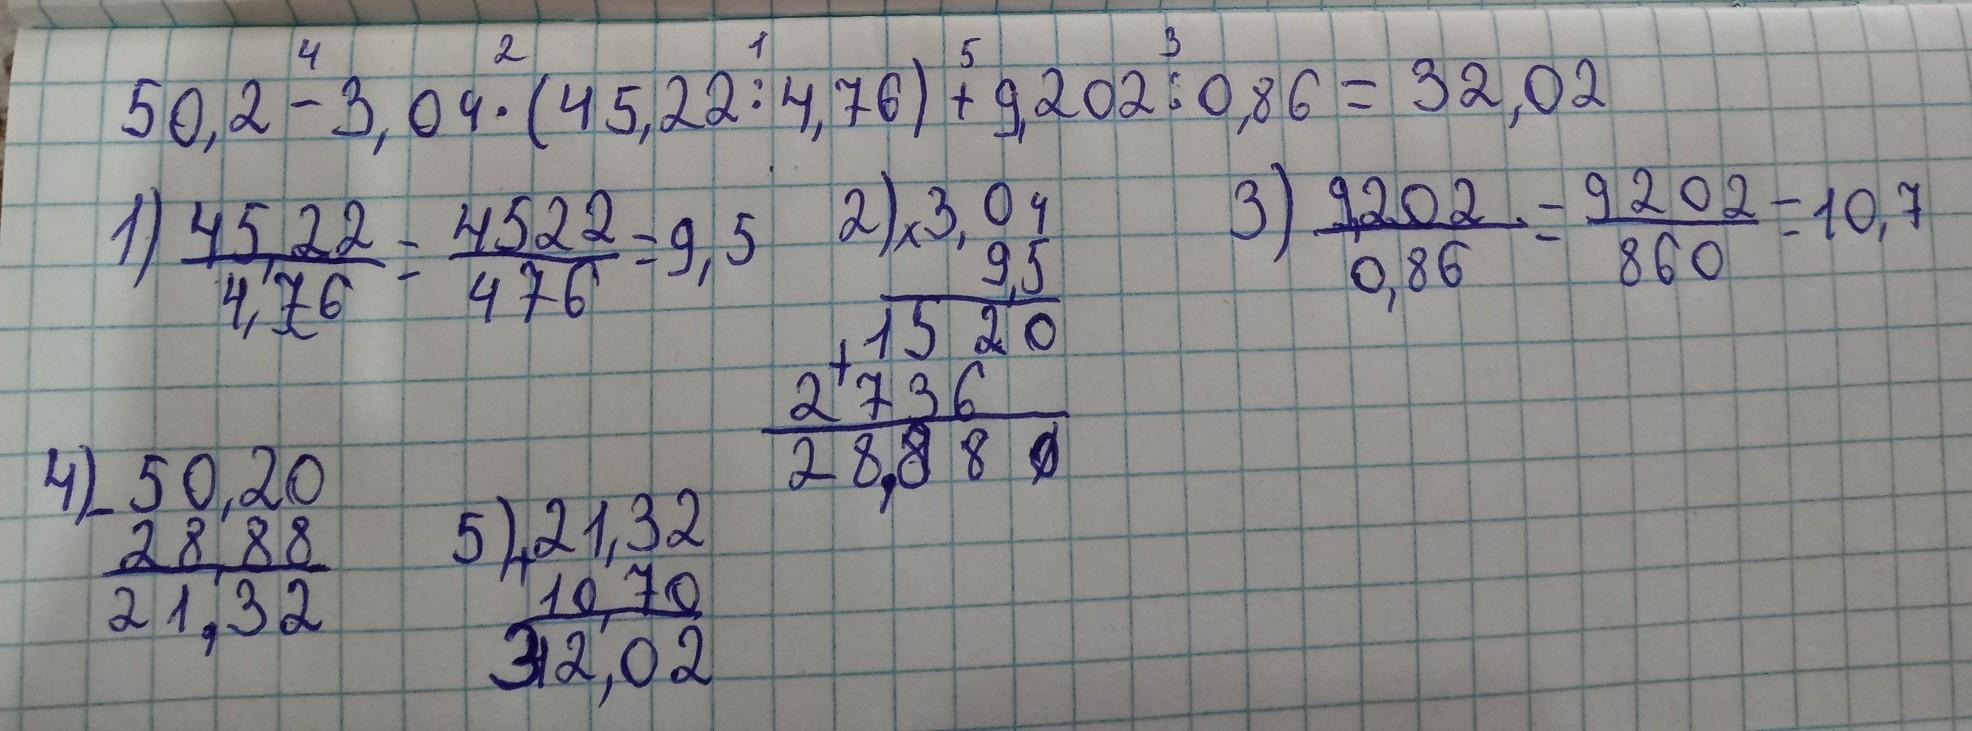 4 2 1 5 3
50,2 - 3,04 · (45,22 : 4,76) + 9,202 : 0,86 = 32,02
1) 45,22/4,76 = 4522/476 = 9,5
2) × 3,04
9,5
+ 1520
2736
28,880
3) 9,202/0,86 = 9202/860 = 10,7
4) - 50,20
28,88
21,32
5) + 21,32
10,70
32,02